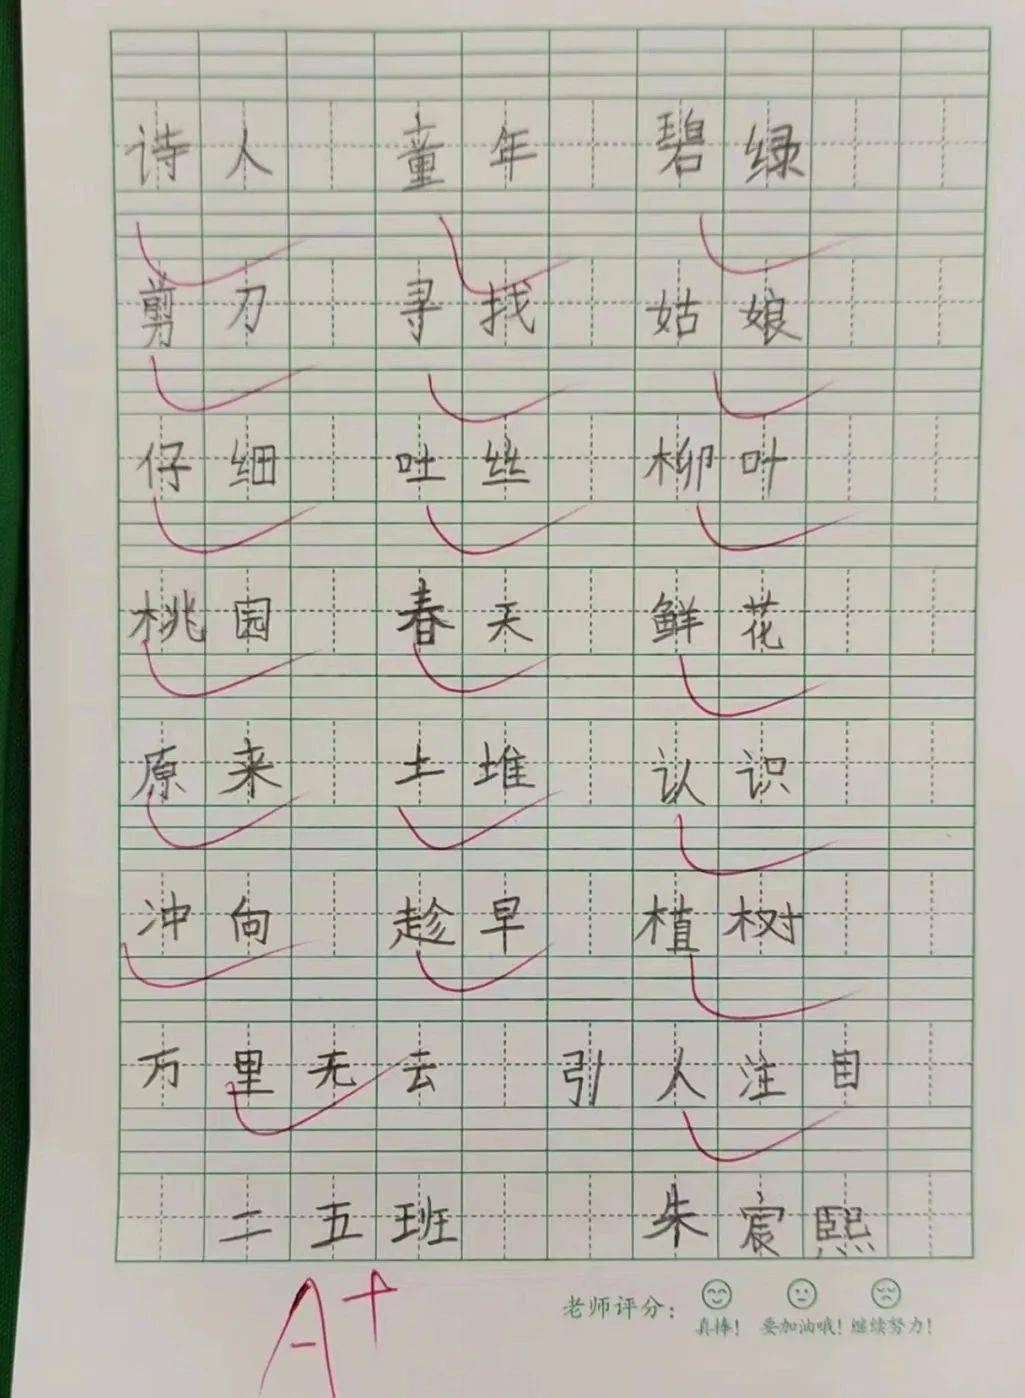 诗人 童年 碧绿
剪刀 寻找 姑娘
仔细 吐丝 柳叶
桃园 春天 鲜花
原来 土堆 认识
冲向 趁早 植树
万里无云 引人注目
二五班 朱宸熙
A+
老师评分：
真棒！ 要加油哦！ 继续努力！